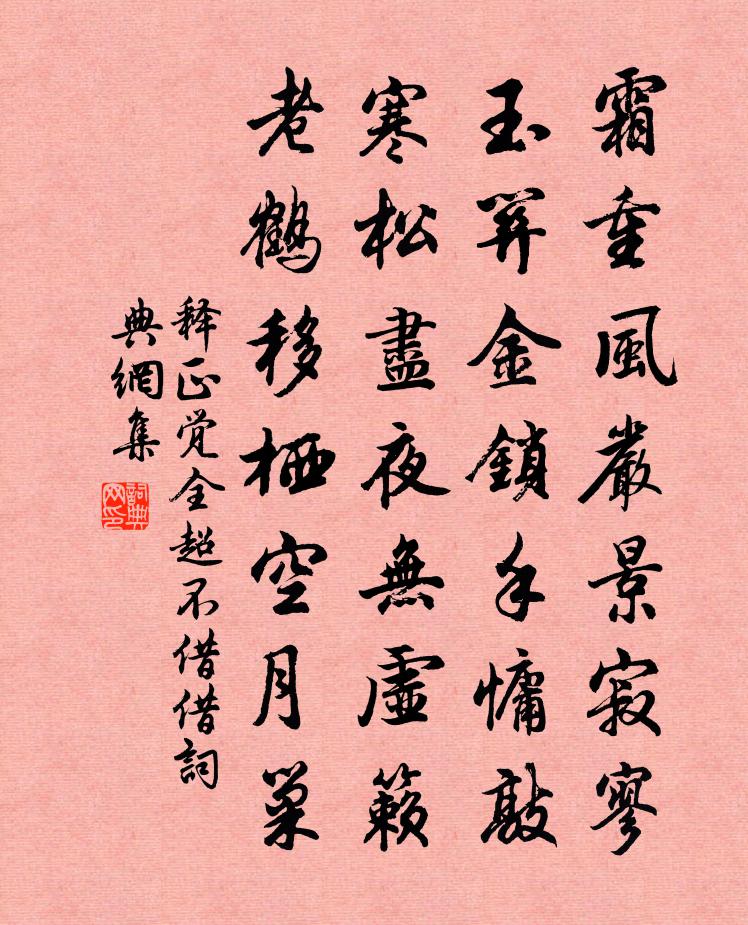 霜重風嚴景寂寥
玉關金鎖手慵敲
寒松盡夜無虛籟
老鶴移栖空月巢
释正觉全超不借借詞
典網集
詞典
网印